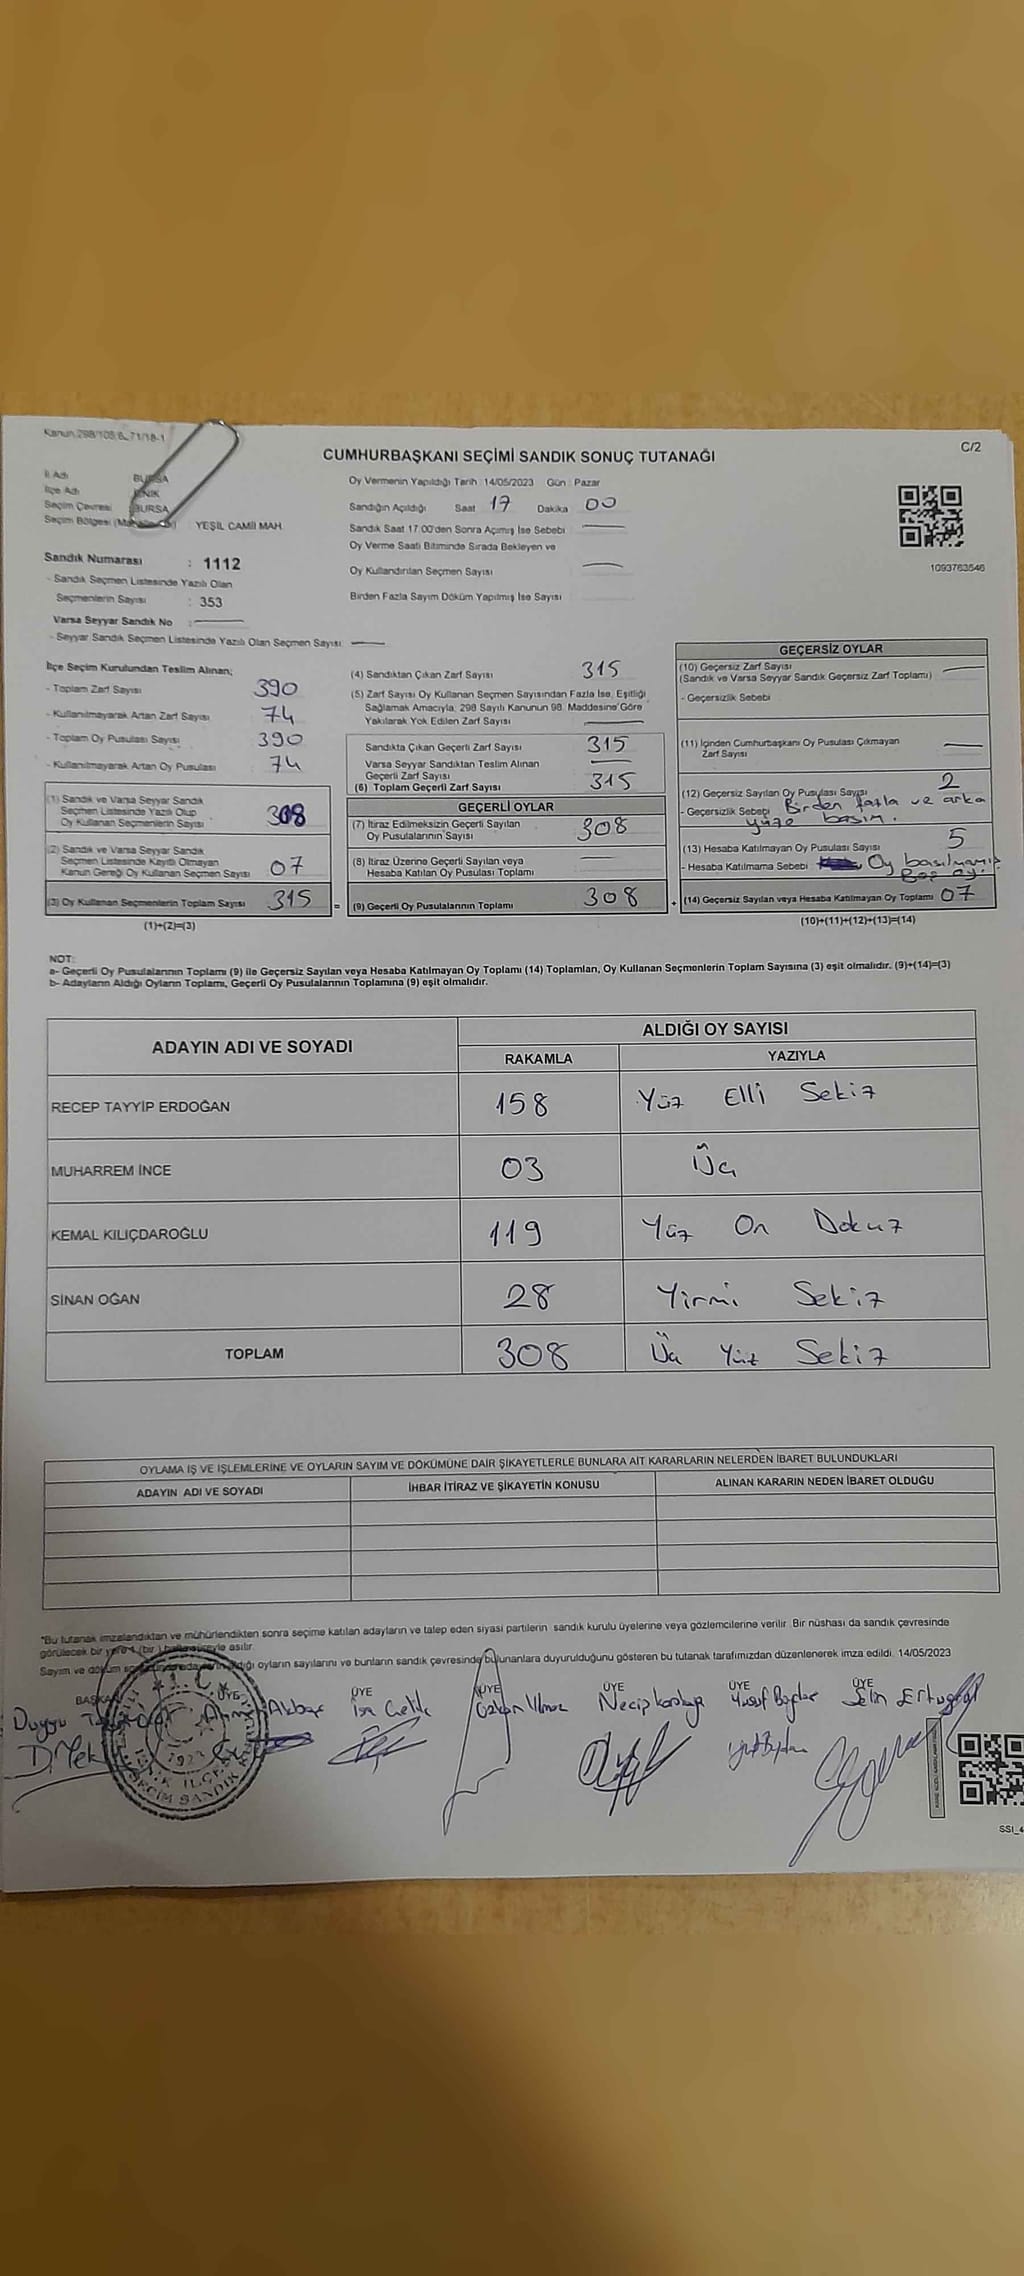 Kanun.298/105/6_71/18-1
C/2
CUMHURBAŞKANI SEÇİMİ SANDIK SONUÇ TUTANAĞI
İl Adı BURSA
İlçe Adı İZNİK
Seçim Çevresi BURSA
Seçim Bölgesi : YEŞİL CAMİİ MAH.
Sandık Numarası : 1112
- Sandık Seçmen Listesinde Yazılı Olan
Seçmenlerin Sayısı : 353
Varsa Seyyar Sandık No :
- Seyyar Sandık Seçmen Listesinde Yazılı Olan Seçmen Sayısı:
Oy Vermenin Yapıldığı Tarih : 14/05/2023 Gün : Pazar
Sandığın Açıldığı Saat 17 Dakika 00
Sandık Saat 17.00'den Sonra Açılmış İse Sebebi
Oy Verme Saati Bitiminde Sırada Bekleyen ve
Oy Kullandırılan Seçmen Sayısı
Birden Fazla Sayım Döküm Yapılmış İse Sayısı
1093763546
İlçe Seçim Kurulundan Teslim Alınan;
- Toplam Zarf Sayısı 390
- Kullanılmayarak Artan Zarf Sayısı 74
- Toplam Oy Pusulası Sayısı 390
- Kullanılmayarak Artan Oy Pusulası 74
(1) Sandık ve Varsa Seyyar Sandık
Seçmen Listesinde Yazılı Olup
Oy Kullanan Seçmenlerin Sayısı 308
(2) Sandık ve Varsa Seyyar Sandık
Seçmen Listesinde Kayıtlı Olmayan
Kanun Gereği Oy Kullanan Seçmen Sayısı 07
(3) Oy Kullanan Seçmenlerin Toplam Sayısı 315 =
(1)+(2)=(3)
(4) Sandıktan Çıkan Zarf Sayısı 315
(5) Zarf Sayısı Oy Kullanan Seçmen Sayısından Fazla İse, Eşitliği
Sağlamak Amacıyla, 298 Sayılı Kanunun 98. Maddesine Göre
Yakılarak Yok Edilen Zarf Sayısı
Sandıkta Çıkan Geçerli Zarf Sayısı 315
Varsa Seyyar Sandıktan Teslim Alınan
Geçerli Zarf Sayısı
(6) Toplam Geçerli Zarf Sayısı 315
GEÇERLİ OYLAR
(7) İtiraz Edilmeksizin Geçerli Sayılan
Oy Pusulalarının Sayısı 308
(8) İtiraz Üzerine Geçerli Sayılan veya
Hesaba Katılan Oy Pusulası Toplamı
(9) Geçerli Oy Pusulalarının Toplamı 308 +
GEÇERSİZ OYLAR
(10) Geçersiz Zarf Sayısı
(Sandık ve Varsa Seyyar Sandık Geçersiz Zarf Toplamı)
- Geçersizlik Sebebi
(11) İçinden Cumhurbaşkanı Oy Pusulası Çıkmayan
Zarf Sayısı
(12) Geçersiz Sayılan Oy Pusulası Sayısı 2
- Geçersizlik Sebebi Birden fazla ve arka
yüze basım.
(13) Hesaba Katılmayan Oy Pusulası Sayısı 5
- Hesaba Katılmama Sebebi Oy basılmamış
Boş oy.
(14) Geçersiz Sayılan veya Hesaba Katılmayan Oy Toplamı 07
(10)+(11)+(12)+(13)=(14)
NOT:
a- Geçerli Oy Pusulalarının Toplamı (9) ile Geçersiz Sayılan veya Hesaba Katılmayan Oy Toplamı (14) Toplamları, Oy Kullanan Seçmenlerin Toplam Sayısına (3) eşit olmalıdır. (9)+(14)=(3)
b- Adayların Aldığı Oyların Toplamı, Geçerli Oy Pusulalarının Toplamına (9) eşit olmalıdır.
ADAYIN ADI VE SOYADI ALDIĞI OY SAYISI
RAKAMLA YAZIYLA
RECEP TAYYİP ERDOĞAN 158 Yüz Elli Sekiz
MUHARREM İNCE 03 Üç
KEMAL KILIÇDAROĞLU 119 Yüz On Dokuz
SİNAN OĞAN 28 Yirmi Sekiz
TOPLAM 308 Üç Yüz Sekiz
OYLAMA İŞ VE İŞLEMLERİNE VE OYLARIN SAYIM VE DÖKÜMÜNE DAİR ŞİKAYETLERLE BUNLARA AİT KARARLARIN NELERDEN İBARET BULUNDUKLARI
ADAYIN ADI VE SOYADI İHBAR İTİRAZ VE ŞİKAYETİN KONUSU ALINAN KARARIN NEDEN İBARET OLDUĞU
*Bu tutanak imzalandıktan ve mühürlendikten sonra seçime katılan adayların ve talep eden siyasi partilerin sandık kurulu üyelerine veya gözlemcilerine verilir. Bir nüshası da sandık çevresinde
görülecek bir yere 1 (bir) hafta süreyle asılır.
Sayım ve döküm oyların sayılarını ve bunların sandık çevresinde bulunanlara duyurulduğunu gösteren bu tutanak tarafımızdan düzenlenerek imza edildi. 14/05/2023
BAŞKAN ÜYE ÜYE ÜYE ÜYE ÜYE ÜYE
Duygu Akbaş İsa Çelik Özkan Yılmaz Necip Karakaya Yusuf Selin Ertuğrul
T.C.
1923
SSI_4